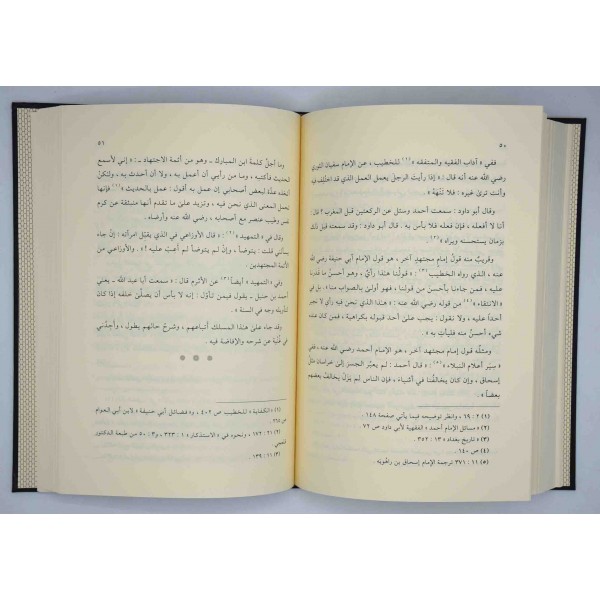 ٥٠
ففي « آداب الفقيه والمتفقه »(١) للخطيب ، عن الإمام سفيان الثوري
رضي الله عنه أنه قال : « إذا رأيتَ الرجلَ يعمل العمل الذي قد اختُلِف فيه
وأنت ترىٰ غيرَه : فلا تَنْهَهُ » .
وقال أبو داود : سمعت أحمد وسئل عن الركعتين قبل المغرب ؟ قال :
أنا لا أفعله ، فإن فعله رجل لا بأس به . قال أبو داود : وقد سمعته قبل ذلك
بزمان يستحسنه ويراه »(٢) .
وقريبٌ منه قولُ إمامٍ مجتهدٍ آخر ، هو الإمام أبي حنيفة رضي الله
عنه ، الذي رواه الخطيب(٣) : « قولُنا هذا رأيٌ ، وهو أحسنُ ما قَدَرنا
عليه ، فمن جاءنا بأحسنَ من قولنا ، فهو أولىٰ بالصواب منا » . بل في
« الانتقاء »(٤) من قوله رضي الله عنه : « هذا الذي نحن فيه رأي لا نُجبِر
أحداً عليه ، ولا نقول : يجب علىٰ أحد قبوله بكراهية ، فمن كان عنده
شيء أحسنُ منه فليأتِ به » .
ومثلُه قول إمام مجتهد آخر ، هو الإمام أحمد رضي الله عنه ، ففي
« سِيَر أعلام النبلاء »(٥) : « قال أحمد : لم يعبُرِ الجسرَ إلىٰ خراسانَ مثلُ
إسحاق ، وإن كان يخالفُنا في أشياءَ ، فإن الناس لم يَزَلْ يخالفُ بعضهم
بعضاً » .
(١) ٢ : ٦٩ ، وانظر توضيحه فيما يأتي صفحة ١٤٨ .
(٢) « مسائل الإمام أحمد » الفقهية لأبي داود ص ٧٢ .
(٣) « تاريخ بغداد » ١٣ : ٣٥٢ .
(٤) ص ١٤٠ .
(٥) ١١ : ٣٧١ ترجمة الإمام إسحاق بن راهويه .
٥١
وما أجلَّ كلمةَ ابن المبارك - وهو من أئمة الاجتهاد - : « إني لأسمع
الحديث فأكتبه ، وما من رأيي أن أعمل به ، ولا أن أحدث به ، ولكنْ
أتخذه عُدَّةً لبعض أصحابي إن عمل به أقول : عمل بالحديث »(١) فإنها
تحمل المعنى الذي نحن فيه ، وتزيد علىٰ ما تقدم أنها منبثقة عن كرمِ
نفسٍ وطِيبِ عنصر مع أصحابه ، رضي الله عنه وأرضاه .
وقال في « التمهيد »(٢) : « قال الأوزاعي في الذي يقبّل امرأته : إنْ جاء
يسألني قلت : يتوضأ ، وإنْ لم يتوضأ لم أعِبْ عليه » ! . والأوزاعي من
الأئمة المجتهدين .
وفي « التمهيد » أيضاً(٣) عن الأثرم قال : « سمعت أبا عبد الله - يعني
أحمد بن حنبل - يقول فيمن تأوَّل : إنه لا بأس أن يصلَّىٰ خلفه إذا كان
تأويله وجه في السنة » .
وقد جاء علىٰ هذا المسلك أتباعهم ، وشرحُ حالهم يطول ، وأجدُني
في غُنْية عن شرحه والإفاضة فيه .
(١) « الكفاية » للخطيب ص ٤٠٢ ، و« فضائل أبي حنيفة » لابن أبي العوام
ص ٢٦٥
(٢) ٢١ : ١٧٢ ، ونحوه في « الاستذكار » ١ : ٣٢٣ ، و٣ : ٥٠ من طبعة الدكتور
قلعجي
(٣) ١١ : ١٣٩ .